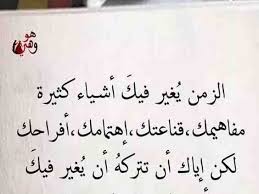 هو
وهي
الزمن يُغير فيكَ أشياء كثيرة
مفاهيمك،قناعتك،إهتمامك،أفراحك
لكن إياك أن تتركهُ أن يُغير فيكَ